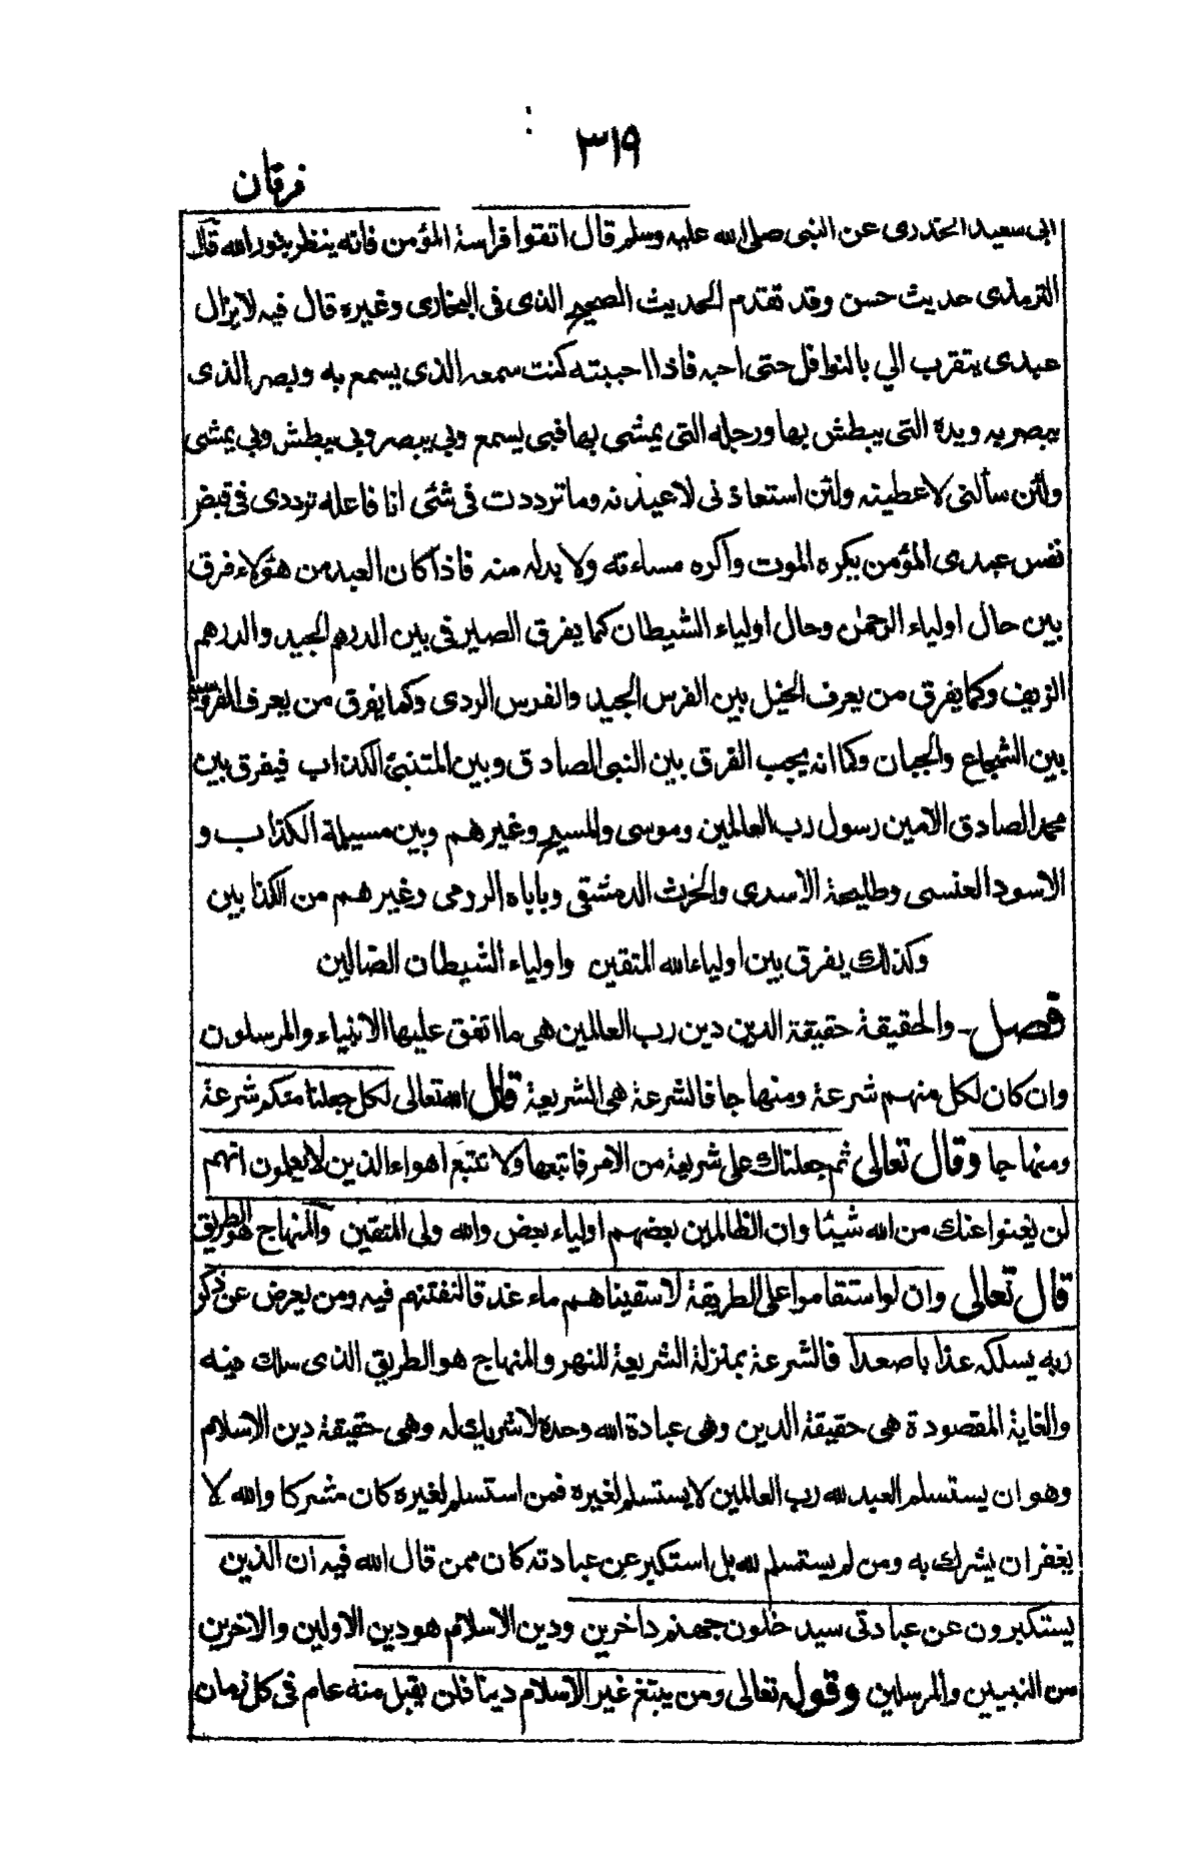 ٣١٩
فرقان
ابی سعید الخدری عن النبی صلی الله علیه وسلم قال اتقوا فراسة المؤمن فانه ینظر بنور الله قال
الترمذی حدیث حسن وقد تقدم الحدیث الصحیح الذی فی البخاری وغیره قال فیه لا یزال
عبدی یتقرب الی بالنوافل حتی احبه فاذا احببته کنت سمعه الذی یسمع به وبصر الذی
یبصر به ویده التی یبطش بها ورجله التی یمشی بها فبی یسمع وبی یبصر وبی یبطش وبی یمشی
ولئن سألنی لاعطینه ولئن استعاذنی لاعیذنه وما ترددت فی شئی انا فاعله ترددی فی قبض
نفس عبدی المؤمن یکره الموت واکره مساءته ولا بد له منه فاذا کان العبد من هٰؤلاء فرق
بین حال اولیاء الرحمٰن وحال اولیاء الشیطان کما یفرق الصیرفی بین الدرهم الجید والدرهم
الزیف وکما یفرق من یعرف الخیل بین الفرس الجید والفرس الردی وکما یفرق من یعرف الفروسیة
بین الشجاع والجبان وکما انه یجب الفرق بین النبی الصادق وبین المتنبئ الکذاب فیفرق بین
محمد الصادق الامین رسول رب العالمین وموسی والمسیح وغیرهم وبین مسیلمة الکذاب و
الاسود العنسی وطلیحة الاسدی والحٰرث الدمشقی وباباه الرومی وغیرهم من الکذابین
وکذلک یفرق بین اولیاء الله المتقین واولیاء الشیطان الضالین
فصل۔ والحقیقة حقیقة الدین دین رب العالمین هی ما اتفق علیها الانبیاء والمرسلون
وان کان لکل منهم شرعة ومنهاجا فالشرعة هی الشریعة قال الله تعالی لکل جعلنا منکم شرعة
ومنهاجا وقال تعالی ثم جعلناک علی شریعة من الامر فاتبعها ولا تتبع اهواء الذین لا یعلمون انهم
لن یغنوا عنک من الله شیئا وان الظالمین بعضهم اولیاء بعض والله ولی المتقین والمنهاج هو الطریق
قال تعالی وان لو استقاموا علی الطریقة لاسقیناهم ماء غدقا لنفتنهم فیه ومن یعرض عن ذکر
ربه یسلکه عذابا صعدا فالشرعة بمنزلة الشریعة للنهر والمنهاج هو الطریق الذی سلک فیه
والغایة المقصودة هی حقیقة الدین وهی عبادة الله وحده لا شریک له وهی حقیقة دین الاسلام
وهو ان یستسلم العبد لله رب العالمین لا یستسلم لغیره فمن استسلم لغیره کان مشرکا والله لا
یغفر ان یشرک به ومن لم یستسلم لله بل استکبر عن عبادته کان ممن قال الله فیه ان الذین
یستکبرون عن عبادتی سیدخلون جهنم داخرین ودین الاسلام هو دین الاولین والاخرین
من النبیین والمرسلین وقوله تعالی ومن یبتغ غیر الاسلام دینا فلن یقبل منه عام فی کل زمان